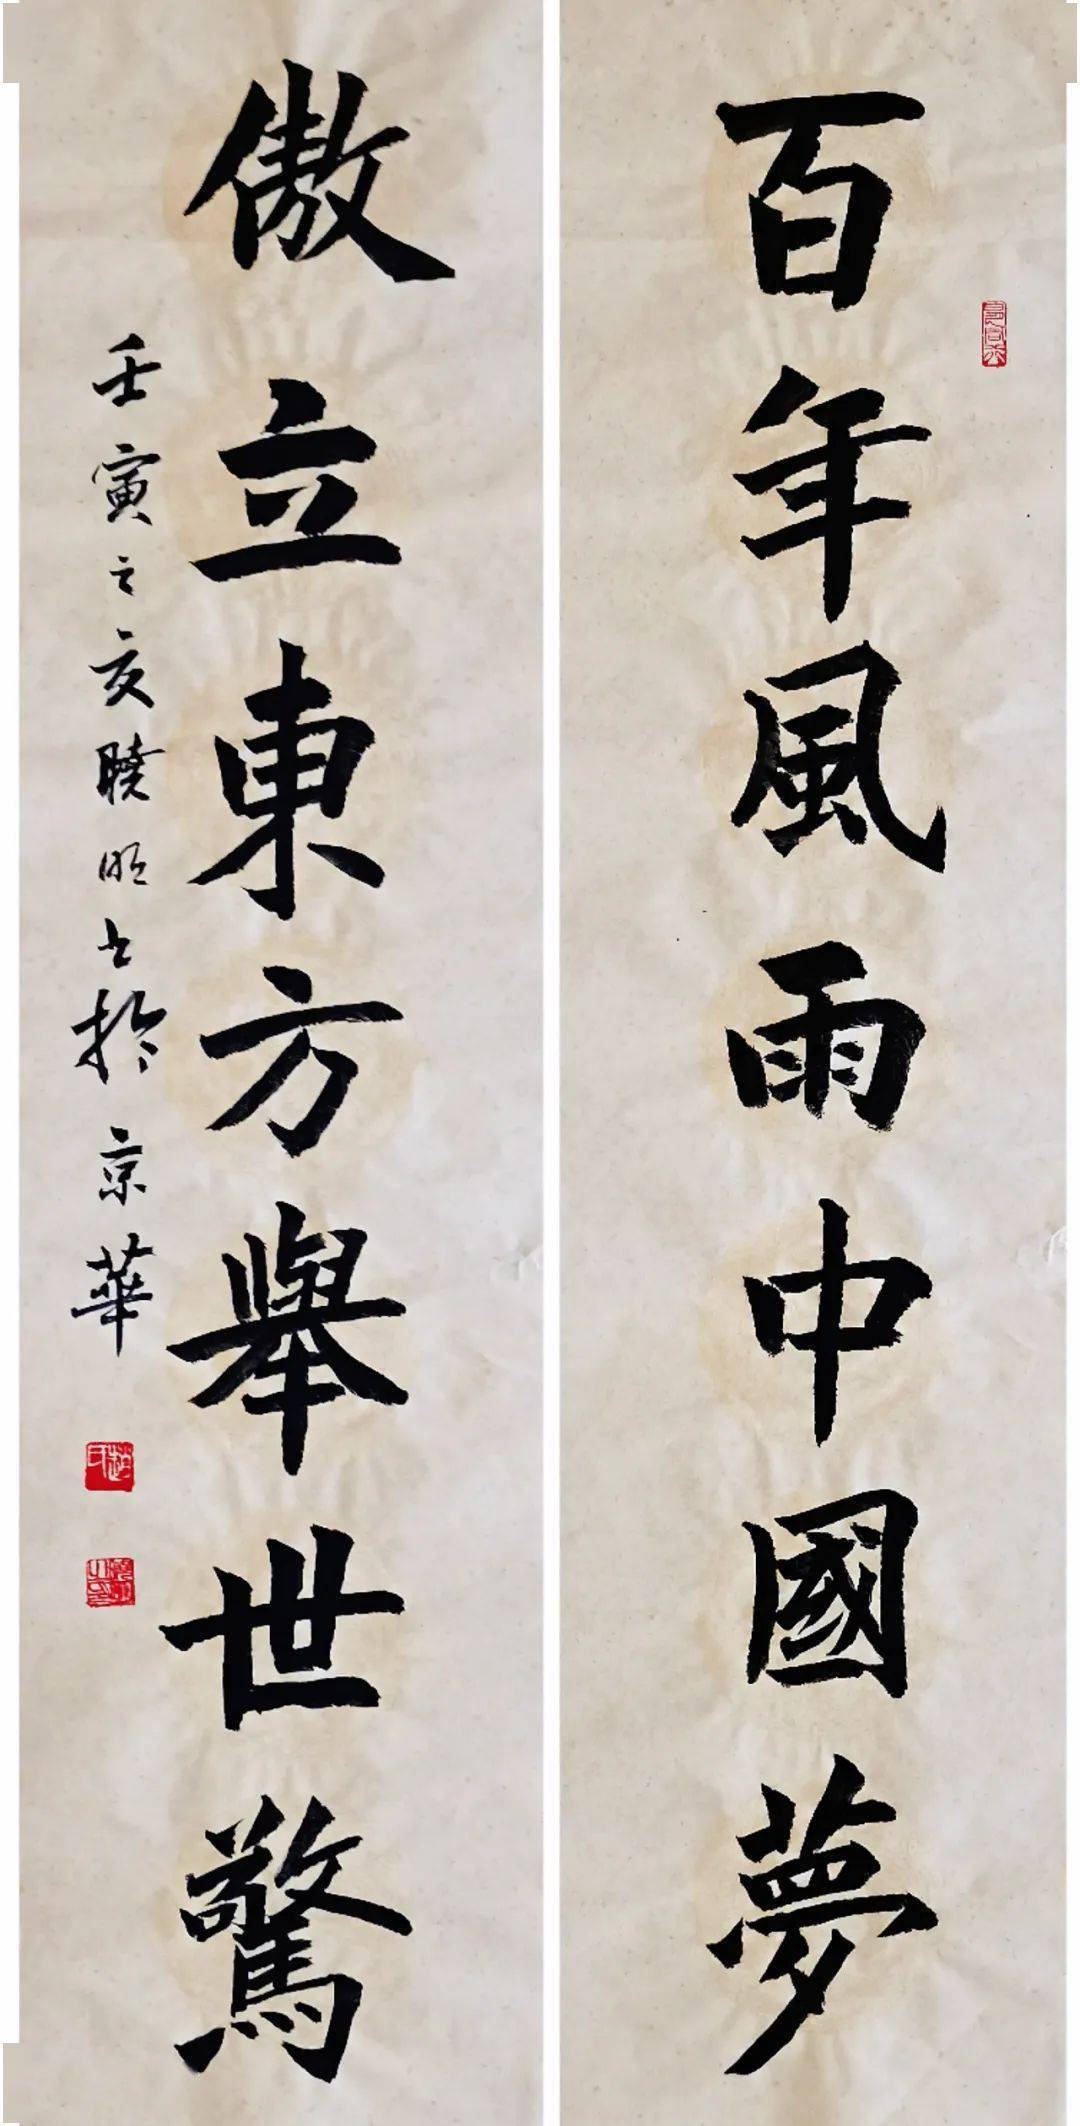 百年風雨中國夢
傲立東方舉世驚
壬寅之夏曉明书於京華